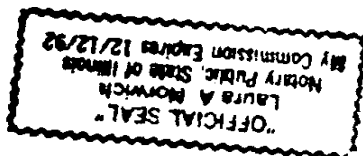 "OFFICIAL SEAL"
Laura A Norwich
Notary Public, State of Illinois
My Commission Expires 12/12/92